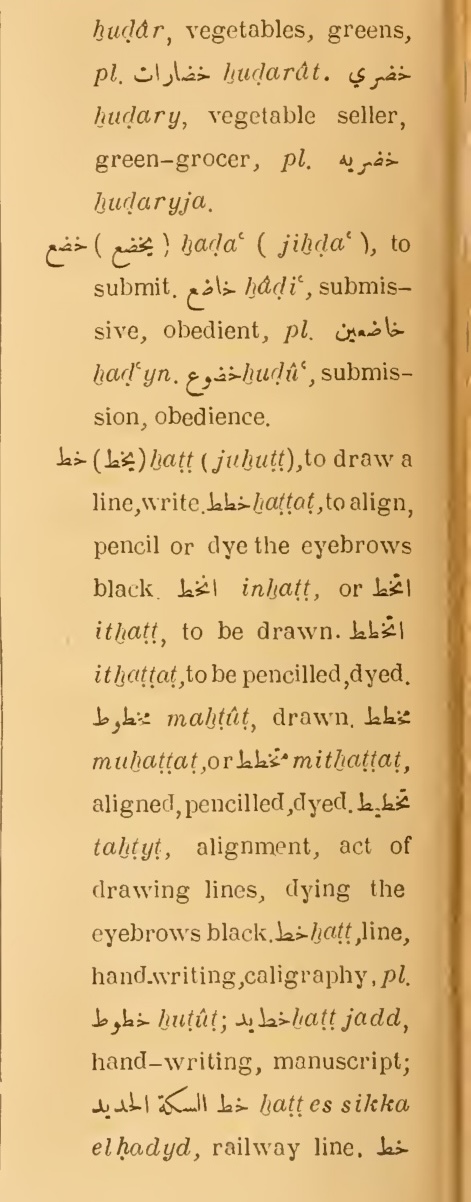 ḫuḍâr, vegetables, greens,
pl. خضارات ḫuḍarât. خضري
ḫuḍary, vegetable seller,
green-grocer, pl. خضريه
ḫuḍaryja.
خضع (يخضع) ḫaḍaʿ ( jiḫḍaʿ ), to
submit. خاضع ḫâḍiʿ, submis-
sive, obedient, pl. خاضعين
ḫaḍʿyn. خضوع ḫuḍûʿ, submis-
sion, obedience.
خط (يخط) ḫaṭṭ (juḫuṭṭ),to draw a
line,write.خطط ḫaṭṭaṭ,to align,
pencil or dye the eyebrows
black. انخط inḫaṭṭ, or اتخط
itḫaṭṭ, to be drawn. اتخطط
itḫaṭṭaṭ,to be pencilled,dyed.
مخطوط maḫṭûṭ, drawn. مخطط
muḫaṭṭaṭ,or متخطط mitḫaṭṭaṭ,
aligned,pencilled,dyed.تخطيط
taḫṭyṭ, alignment, act of
drawing lines, dying the
eyebrows black.خط ḫaṭṭ,line,
hand-writing,caligraphy, pl.
خطوط ḫuṭûṭ; خط يد ḫaṭṭ jadd,
hand-writing, manuscript;
خط السكة الحديد ḫaṭṭ es sikka
elḥadyd, railway line. خط